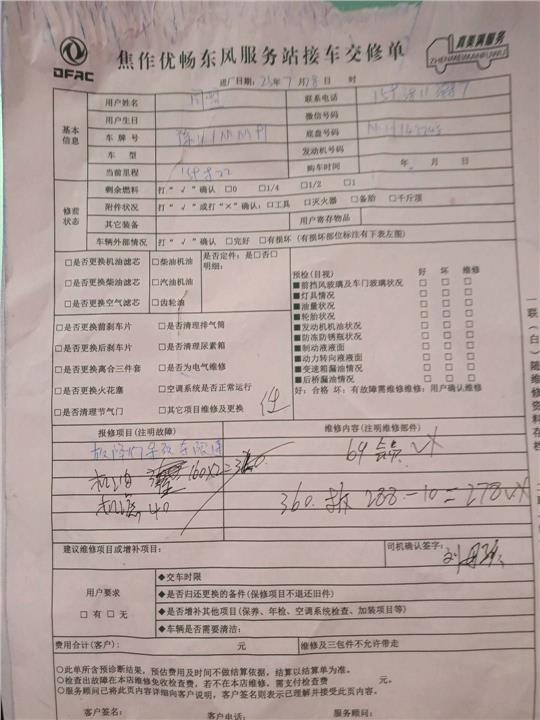 DFAC
焦作优畅东风服务站接车交修单
真美满服务
ZHENMEIMANFUWU
进厂日期：25年7月28日 时
基本信息
用户姓名
联系电话
用户生日
微信号码
车 牌 号
底盘号码
车 型
发动机号码
当前里程
购车时间
年 月 日
修前状态
剩余燃料
打“√”确认 □0 □1/4 □1/2 □1
附件状况
打“√”或打“×”确认：□工具 □灭火器 □备胎 □千斤顶
其它装备
用户寄存物品
车辆外部情况
打“√”确认 □完好 □有损坏（有损坏部位标注有下表左图）
□是否更换机油滤芯
□柴油机油
是否定件：是□否□
明细：
□是否更换柴油滤芯
□汽油机油
□是否更换空气滤芯
□齿轮油
□是否更换前刹车片
□是否清理排气筒
□是否更换后刹车片
□是否清理尿素箱
□是否更换离合三件套
□是否为电气维修
□是否更换火花塞
□空调系统是否正常运行
□是否清理节气门
□其它项目维修及更换
预检(目视) 好 坏 维修
■前挡风玻璃及车门玻璃状况 □ □ □
■灯具情况 □ □ □
■油量状况 □ □ □
■轮胎状况 □ □ □
■发动机机油状况 □ □ □
■防冻防锈瓶状况 □ □ □
■制动液液面 □ □ □
■动力转向液液面 □ □ □
■变速箱漏油情况 □ □ □
■后桥漏油情况 □ □ □
好：合格 坏：有故障需维修维修：用户确认维修
一联(白)随维修资料存档
报修项目(注明故障)
维修内容(注明维修部件)
69
机油
160×2=320
机滤 40
360.
288-10=278
建议维修项目或增补项目：
司机确认签字：
用户要求
□有 □无
◆交车时限
◆是否归还更换的备件(保修项目不退还旧件)
◆是否增补其他项目(保养、年检、空调系统检查、加装项目等)
◆车辆是否需要清洁：
费用合计(客户)： 元
维修及三包件不允许带走
○此单所含预诊断结果，预估费用及时间不做结算依据，结算以结算单为准。
○检查出故障在本店维修免收检查费，若不在本店维修，需支付检查费 元。
○服务顾问已将此页内容详细向客户说明，客户签名则表示已理解并接受此页内容。
客户签名： 客户电话： 服务顾问：